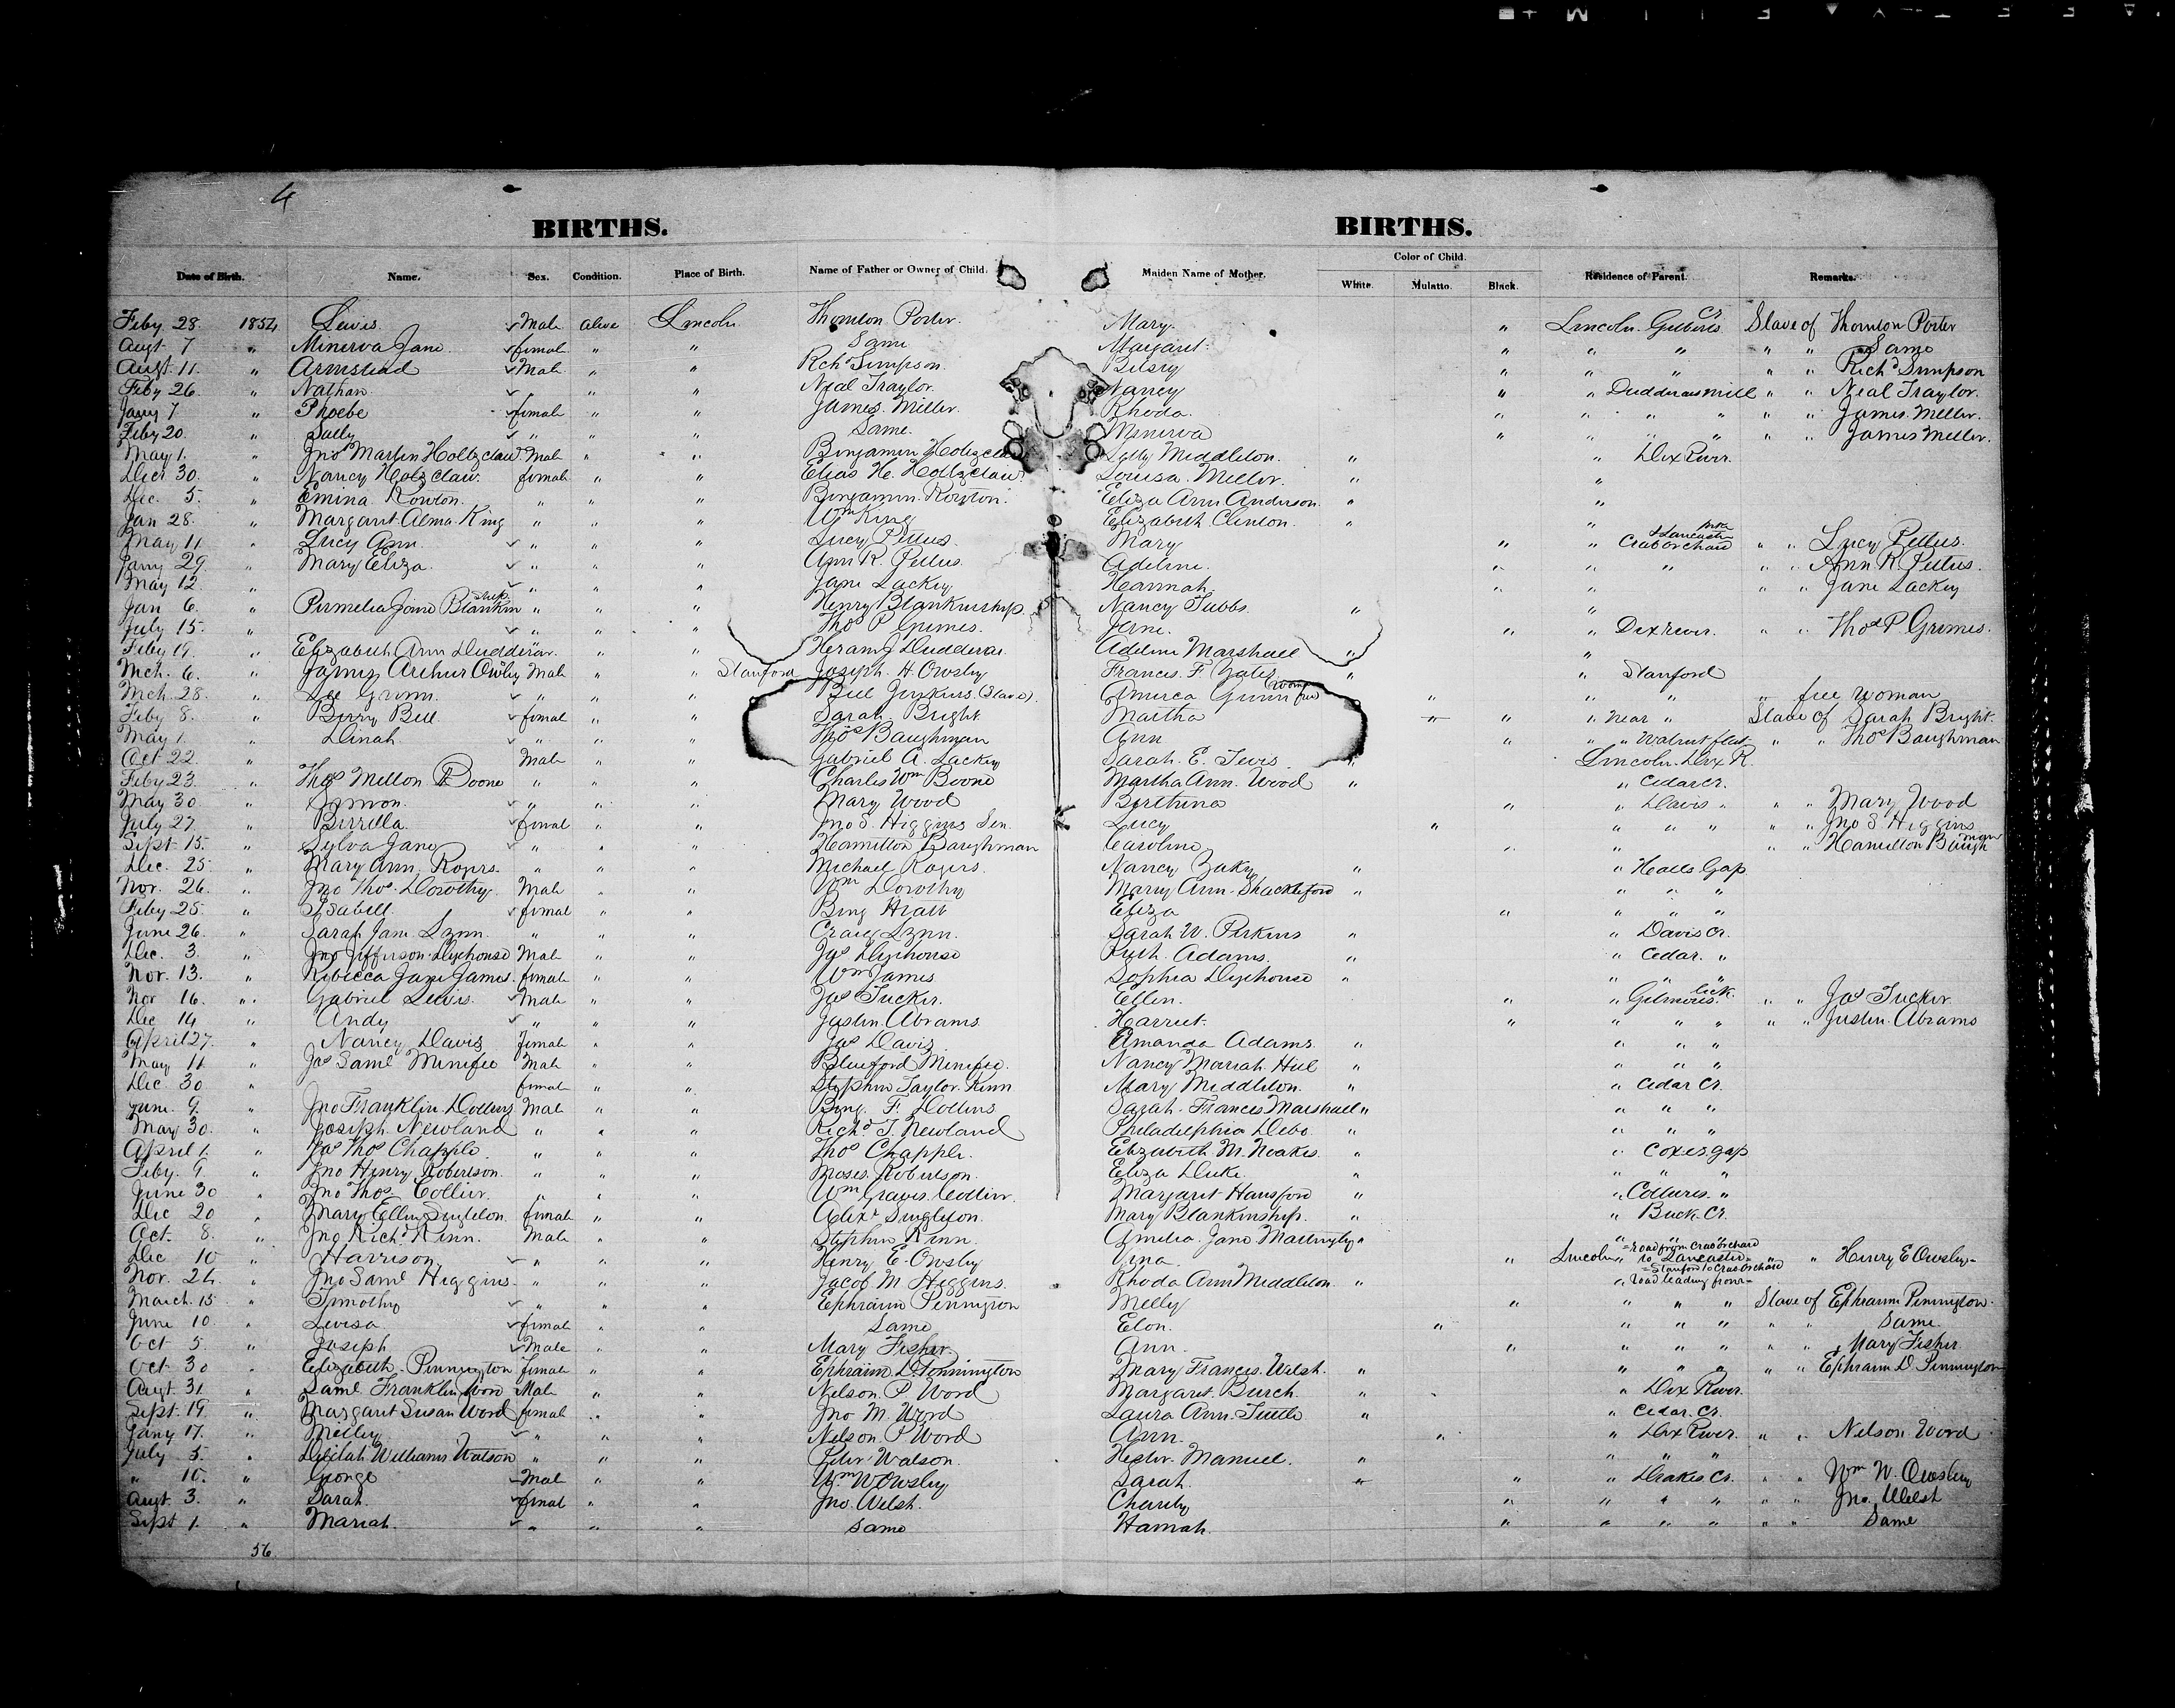 4
BIRTHS. BIRTHS.
Date of Birth. Name. Sex. Condition. Place of Birth. Name of Father or Owner of Child. Maiden Name of Mother. Color of Child. White. Mulatto. Black. Residence of Parent. Remarks.
Feby 28. 1854 Lewis. Male alive Lincoln Thornton Porter. Mary. " Lincoln Gilberts Cr Slave of Thornton Porter
Augt 7 " Minerva Jane. female " " Same Margaret. " " " " " Same
Augt. 11. " Armstead Male " " Richd Simpson. Betsey " " " " " Richd Simpson
Feby 26. " Nathan " " " Neal Traylor. Nancy " " Dudderars mill " " Neal Traylor.
Jany 7 " Phoebe female " " James Miller. Rhoda. " " " " " " James Miller.
Feby 20. " Sally " " " Same. Minerva " " " " " " James Miller.
May 1. " Jno Martin Holtzclaw. Male " " Benjamin Holtzclaw Sally Middleton. " " Dix River.
Decr 30. " Nancy Holtzclaw. female " " Elias H. Holtzclaw Louisa Miller. " "
Dec. 5. " Emina Rowton. " " " Benjamin Rowton. Eliza Ann Anderson. " "
Jan 28. " Margaret Alma King " " " Wm King Elizabeth Clinton. " "
May 11 " Lucy Ann. " " " Lucy Pettus. Mary " " Crab Orchard & Lancaster " " Lucy Pettus.
Jany 29. " Mary Eliza. " " " Ann R. Pettus. Adeline. " " " " " Ann R Pettus.
May 12. " " " " Jane Lackey Hannah " " " " Jane Lackey
Jan 6. " Permelia Jane Blankinship " " " Henry Blankinship. Nancy Tubbs. " "
July 15. " " " " Thos P Grimes. " " Dix River. " " Thos P. Grimes.
Feby 19. " Elizabeth Ann Dudderar. " Hiram J Dudderar Adeline Marshall " "
Mch. 6. " James Arthur Owsley Male " " Stanford Joseph. H. Owsley Frances. F. Yates " " Stanford
Mch. 28. " Gunn. " " " Bill Jenkins. (Slave). America Gunn (free woman) " " " " free woman
Feby 8. " Berry Bell. female " " Sarah Bright Martha " " near " Slave of Sarah Bright.
May 1. " Dinah. " " " Thos Baughman Ann " " Walnut flat " " Thos Baughman
Oct 22. " Male " " Gabriel A. Lackey Sarah. E. " Lincoln Dix R.
Feby 23. " Thos Millon Boone " " " Charles Wm Boone Martha Ann. Wood " " Cedar Cr.
May 30 " Simon. " " " Mary Wood " " Davis " " " Mary Wood
July 27. " Birrilla. female " " Jno S. Higgins Sen. Lucy " " " " " " Jno S Higgins
Sept. 15. " Sylva Jane " " " Hamilton Baughman Caroline " " " Hamilton Baughman
Dec. 25. " Mary Ann Rogers. " " " Michael Rogers. Nancy " " Halls Gap
Nov. 26. " Jno Thos. Dorothy. Male " " Wm Dorothy Mary Ann Shackleford " " " "
Feby 25. " Isabell. female " " Benj Hiatt Eliza " " " "
June 26. " Sarah Jane Lynn. " " " Craig Lynn. Sarah W. Perkins " " Davis Cr.
Dec. 3. " Jno Jefferson Dyehouse Male " " Jas Dyehouse Ruth. Adams. " " Cedar. "
Nov. 13. " Rebecca Jane James. female " " Wm James Sophia Dyehouse " " " "
Nov 16. " Gabriel Lewis. Male " " Jas Tucker. Ellen. " " Gilmores lick. " " Jas Tucker
Dec 14 " Andy " " " Justin Abrams. Harriet. " " " " " " Justin Abrams
April 27. " Nancy Davis female " " Jas Davis Amanda Adams. " " " "
May 11 " Jas Saml Minifee Male " " Blueford Minifee. Nancy Mariah Hill " " " "
Dec 30 " female " " Stephen Taylor Mary Middleton. " " Cedar Cr.
June. 9. " Jno Franklin Dollins Male " " Benj. F. Dollins Sarah. Frances Marshall " " " "
May 30. " Joseph Newland " " " Richd. T. Newland Philadelphia Debo. " " " "
April 1. " Jas Thos Chapple. " " " Thos Chapple. Elizabeth M. Noakes. " " Coxes gap
Feby. 9 " Jno Henry Robertson. " " " Moses Robertson. Eliza Duke. " " " "
June 30 " Jno Thos Collier. " " " Wm Graves. Collier. Margaret Hansford " " Colliers. "
Dec 20 " Mary Ellen Singleton. female " " Alexr Singleton. Mary Blankinship. " " Buck Cr.
Oct. 8. " Jno Richd Male " " Stephen Amelia Jane Mattingly " " " "
Dec 10 " Harrison " " " Henry E. Owsley " Lincoln road from Crab Orchard to Lancaster " " Henry E Owsley
Nov. 24. " Jno Saml Higgins. " " " Jacob M Higgins. Rhoda Ann Middleton " " road leading from Stanford to Crab Orchard
March. 15 " Timothy " " " Ephraim Pennington Milly " " " " Slave of Ephraim Pennington.
June 10. " Levisa female " " Same Elon. " " " " " " Same.
Oct 5. " Joseph Male " " Mary Fisher. Ann. " " " " " " Mary Fisher
Oct 30 " Elizabeth. Pennington female " " Ephraim D. Pennington Mary Frances Welsh. " " " " " " Ephraim D. Pennington
Augt. 31. " Saml Franklin Word Male " " Nelson. P. Word Margaret Burch. " " Dix River.
Sept. 19. " Margaret Susan Word female " " Jno M. Word Laura Ann. Tuttle " " Cedar. Cr.
Jany 17. " Milley. " " " Nelson P Word Ann. " " Dix River. " " Nelson Word
July 5. " Delilah Williams Watson " " " Peter Watson. Hester. Manuel. " " " "
" 10. " George Male " " Wm W Owsley Sarah. " " Drakes Cr. " " Wm W. Owsley
Augt. 3. " Sarah. female " " Jno. Welsh. Charity " " " " " " Jno. Welsh
Sept 1. " Mariah. " " " Same Hannah. " " " " " " Same
56.